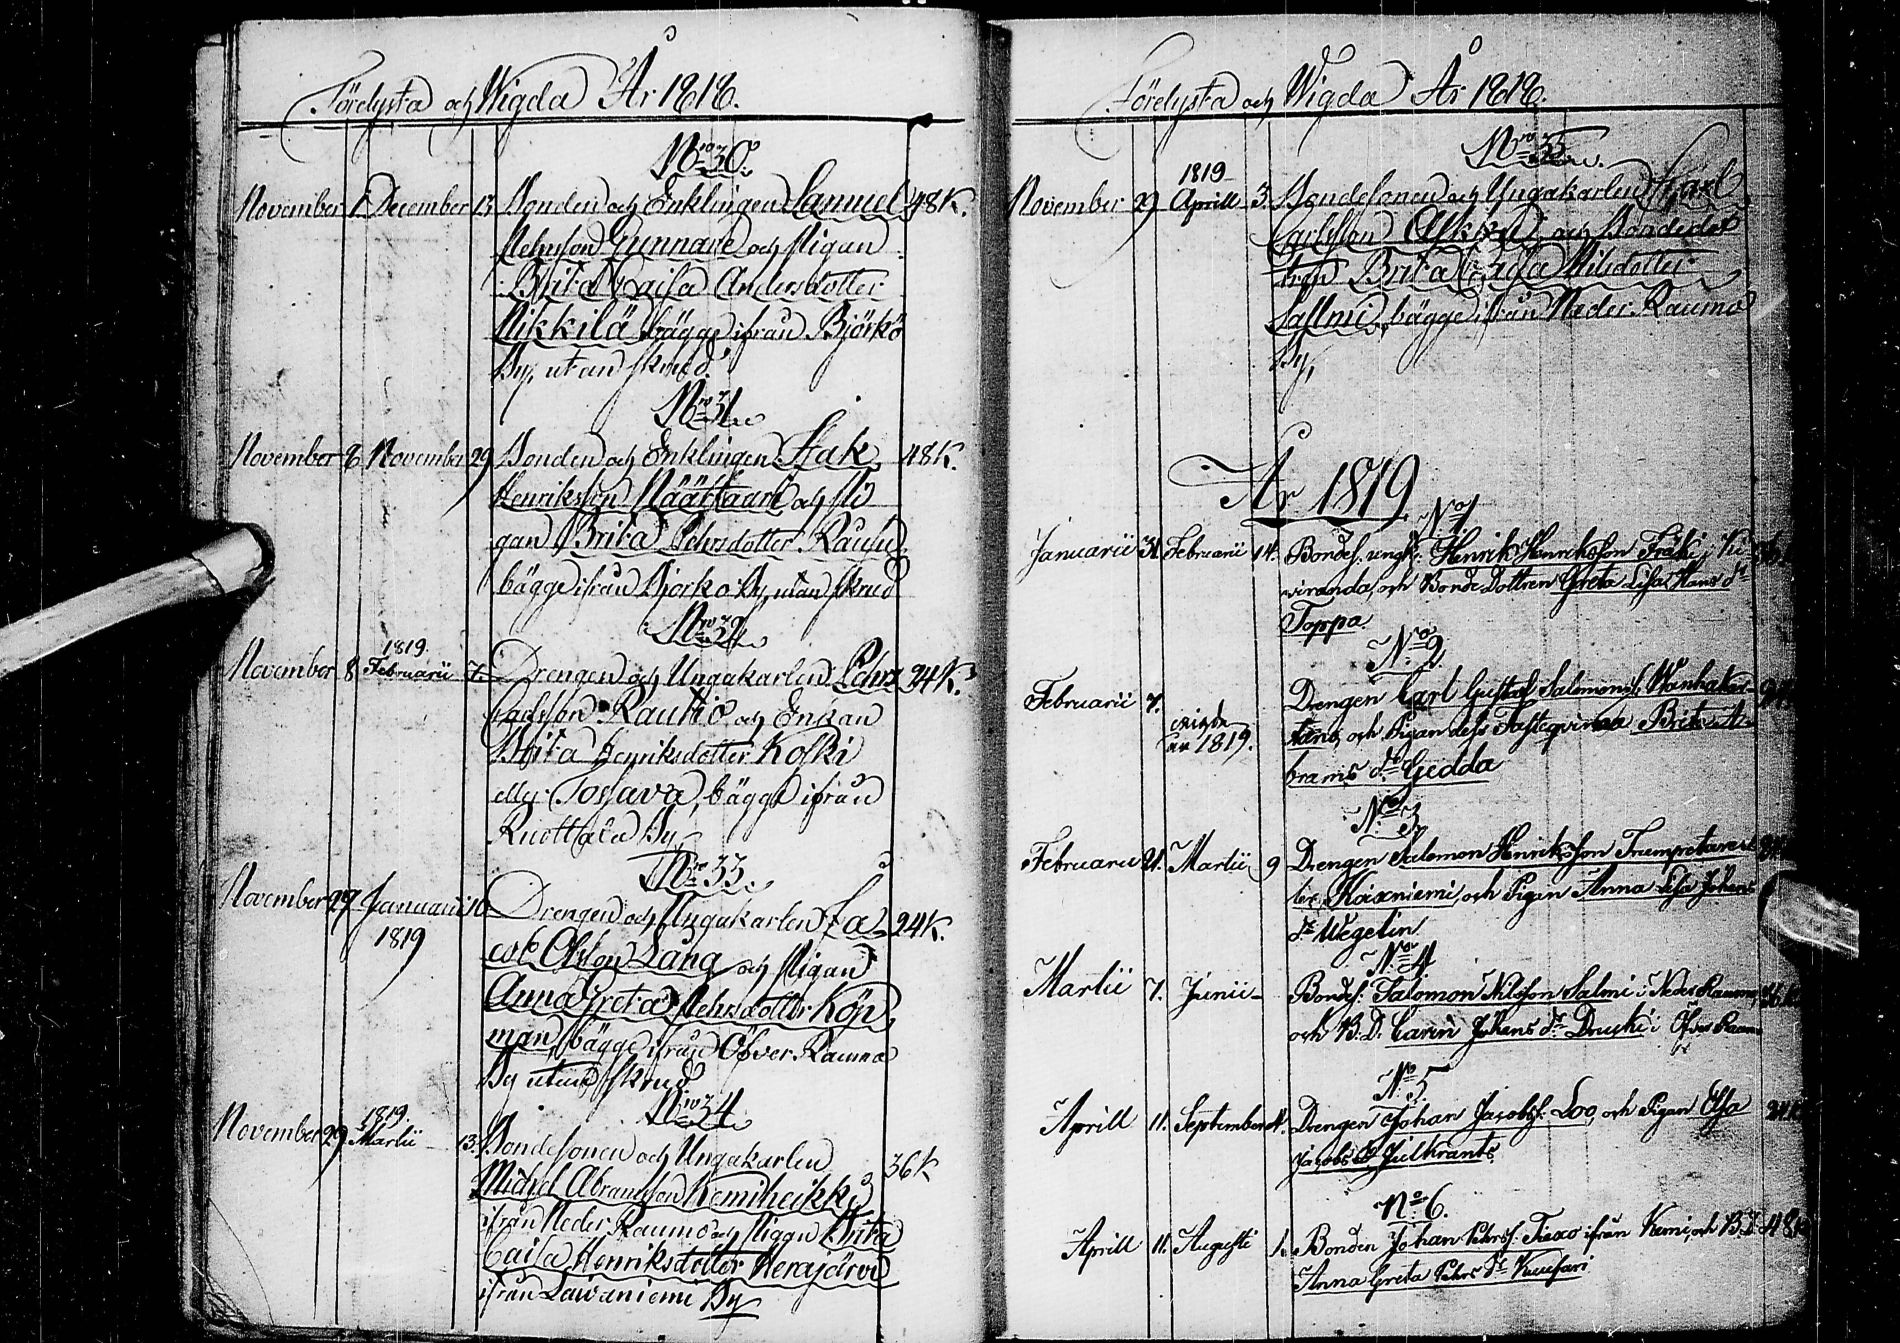 Förelysta och Wigda År 1818.
Nro 30.
November 1 December 13 Bonden och Enklingen Samuel 48K.
Pehrsson Gunnare och Pigan
Brita Caisa Andersdotter
Nikkilä bägge ifrån Björkö
By, utan skrud.
Nro 31.
November 8 November 29 Bonden och Enklingen Isak 48K.
Henriksson Määttaare och Pi
gan Brita Pehrsdotter Rausu
bägge ifrån Björkö By, utan skrud
Nro 32
1819.
November 8 Februarii 7. Drengen och Ungakarlen Pehr 24K.
Carlsson Rautio och Enkan
Brita Henriksdotter Koski
eller Tossava, bägge ifrån
Ruottala By
Nro 33.
November 29 Januarii 10 Drengen och Ungakarlen Ja 24K.
1819
cob Olsson Lång och Pigan
Anna Greta Pehrsdotter Köp
man bägge ifrån Öfver Rauma
By utan skrud
Nro 34
1819.
November 29 Martii 13. Bondesonen och Ungakarlen 36K
Michel Abramsson Kemiheikki
ifrån Neder Raumo och Pigan Brita
Caisa Henriksdotter Herajärvi
ifrån Laivaniemi By
Förelysta och Wigda År 1818.
Nro 35
1819
November 29 Aprill 3. Bondesonen och Ungakarlen Karl
Carlsson och Bondedot
tren Brita Caisa Nilsdotter
bägge ifrån Neder Raumo
By,
År 1819
No 1
Januarii 31. Februarii 14. Bondes. ungk. Henrik Henriksson Fräki i Ku
viranda, och Bonde Dottren Greta Lisa Hans dr
Toppa
No 2.
Februarii 7. Drengen Carl Gustaf Salomonss. Wanhaker
år 1819. tano, och Pigan dess Fästeqvinna Brita A
brams dr Gedda
No 3
Februarii 21. Martii 9 Drengen Salomon Henriksson Trumpetare el
ler Koixniemi, och Pigan Anna Lisa Johans
dr Wegelin
No 4
Martii 7. Junii Bondes: Salomon Nilsson Salmi i Neder Raumo, 36.K
och B. D. Carin Johans dr Drucki i Öfver Raumo
by
No 5
Aprill 11. September 4. Drengen Johan Jacobss. Loo, och Pigan Elsa 24K
Jacobs dr Julkrants
No 6.
Aprill 11. Augusti 1. Bonden Johan Pehrss. Tiexo ifrån Kemi, och B. D. 48K
Anna Greta Pehrs dr Kuusari